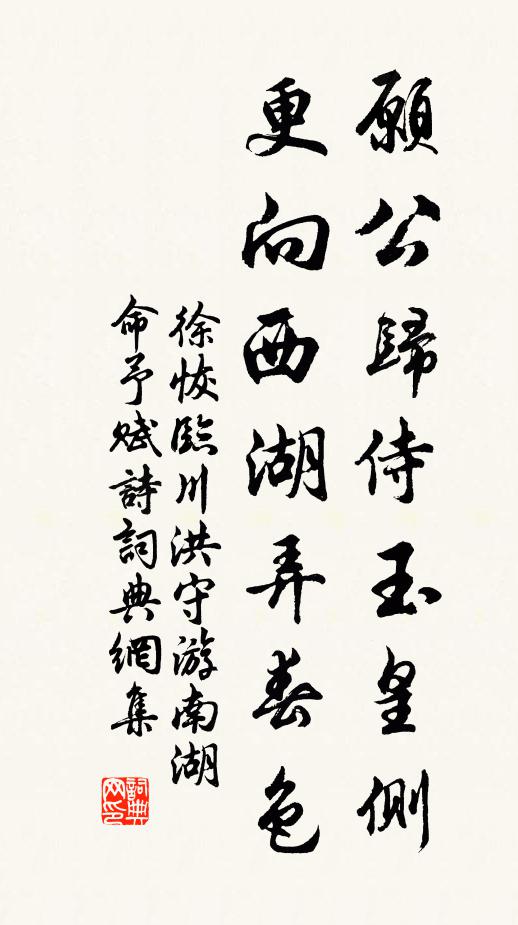 願公歸侍玉皇側
更向西湖弄春色
徐恢臨川洪守游南湖
命予賦詩詞典網集
詞典
网印